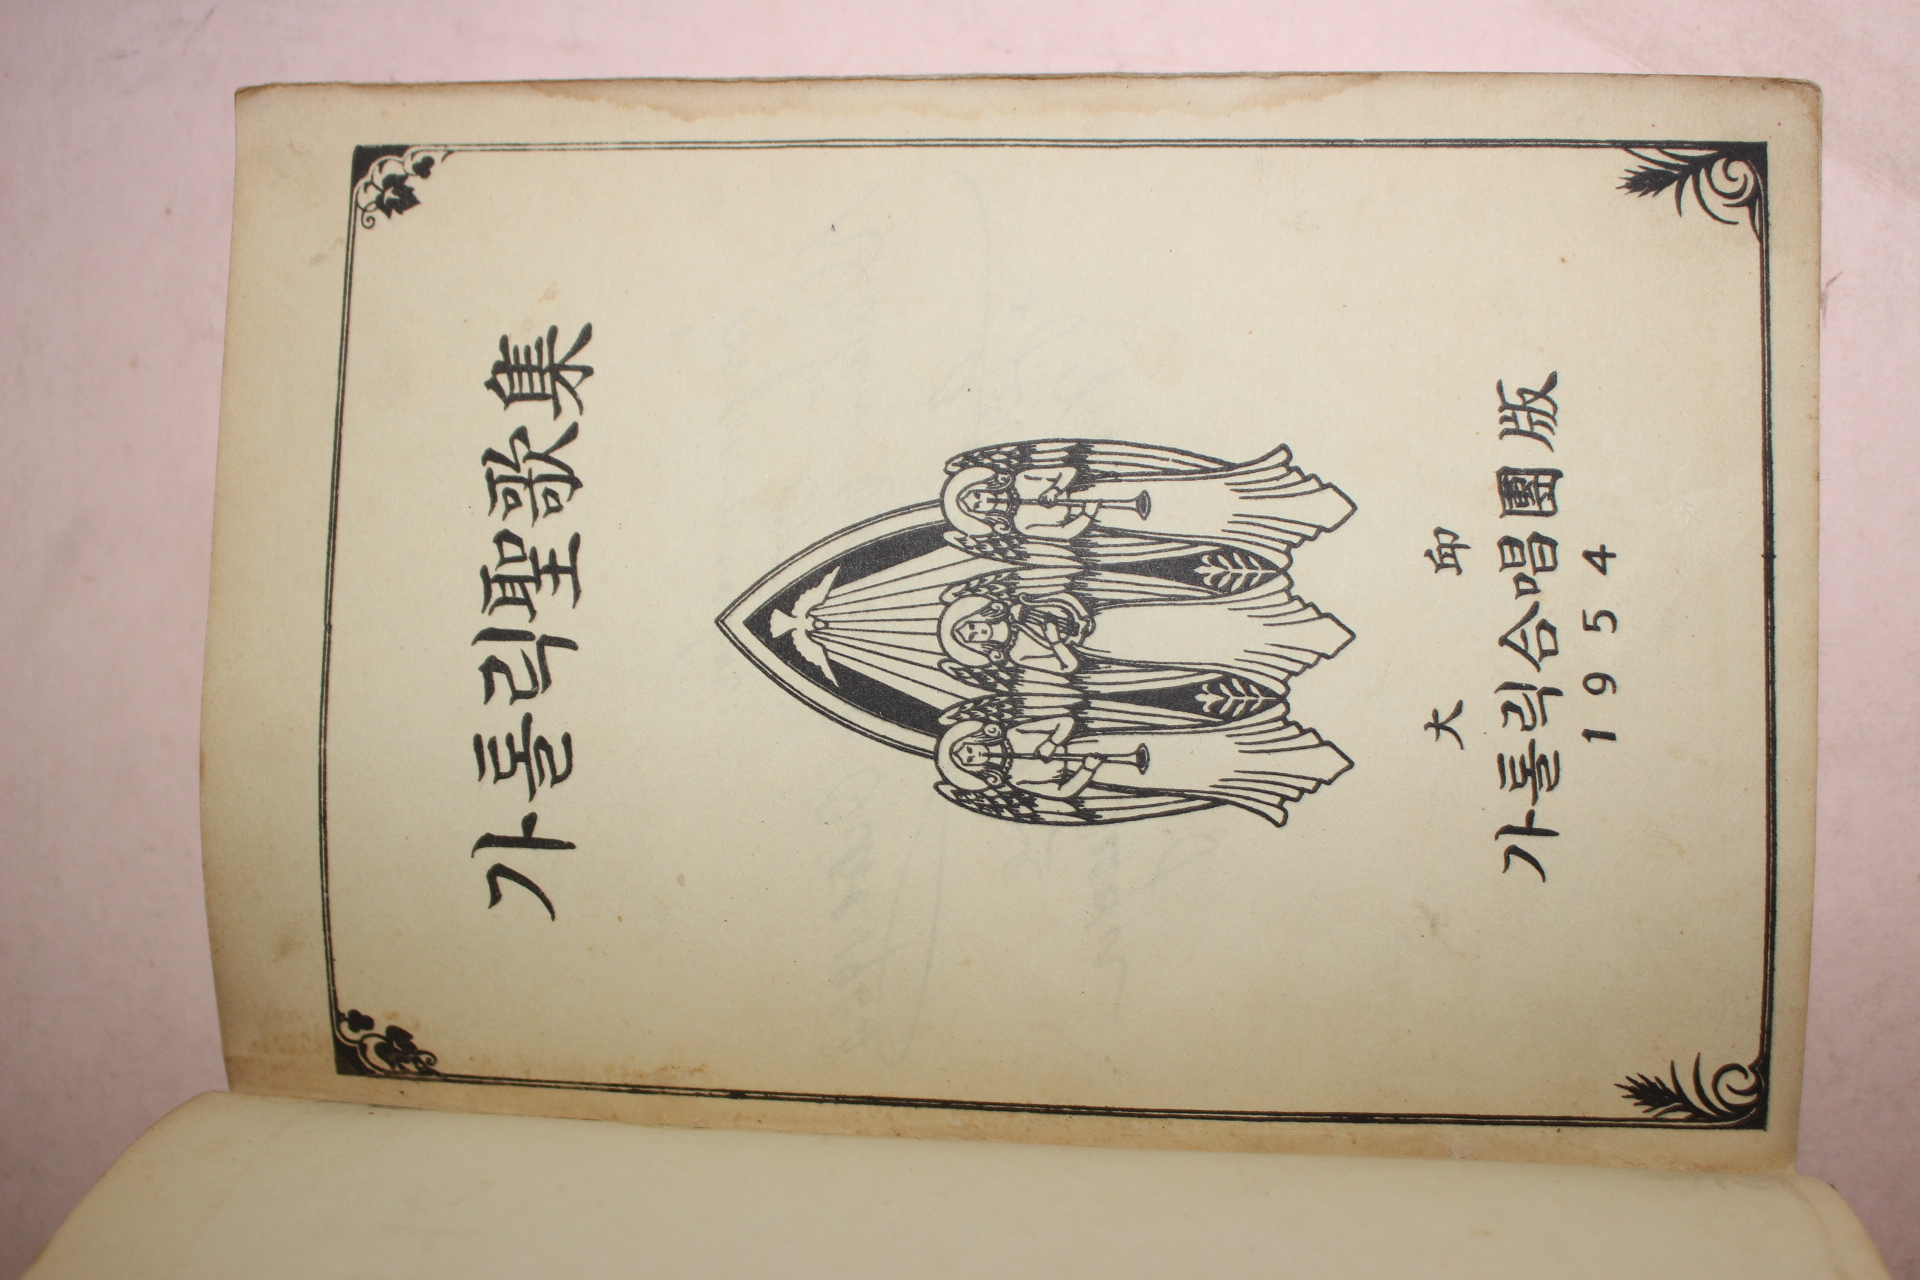 가톨릭聖歌集
大邱
가톨릭合唱團版
1954